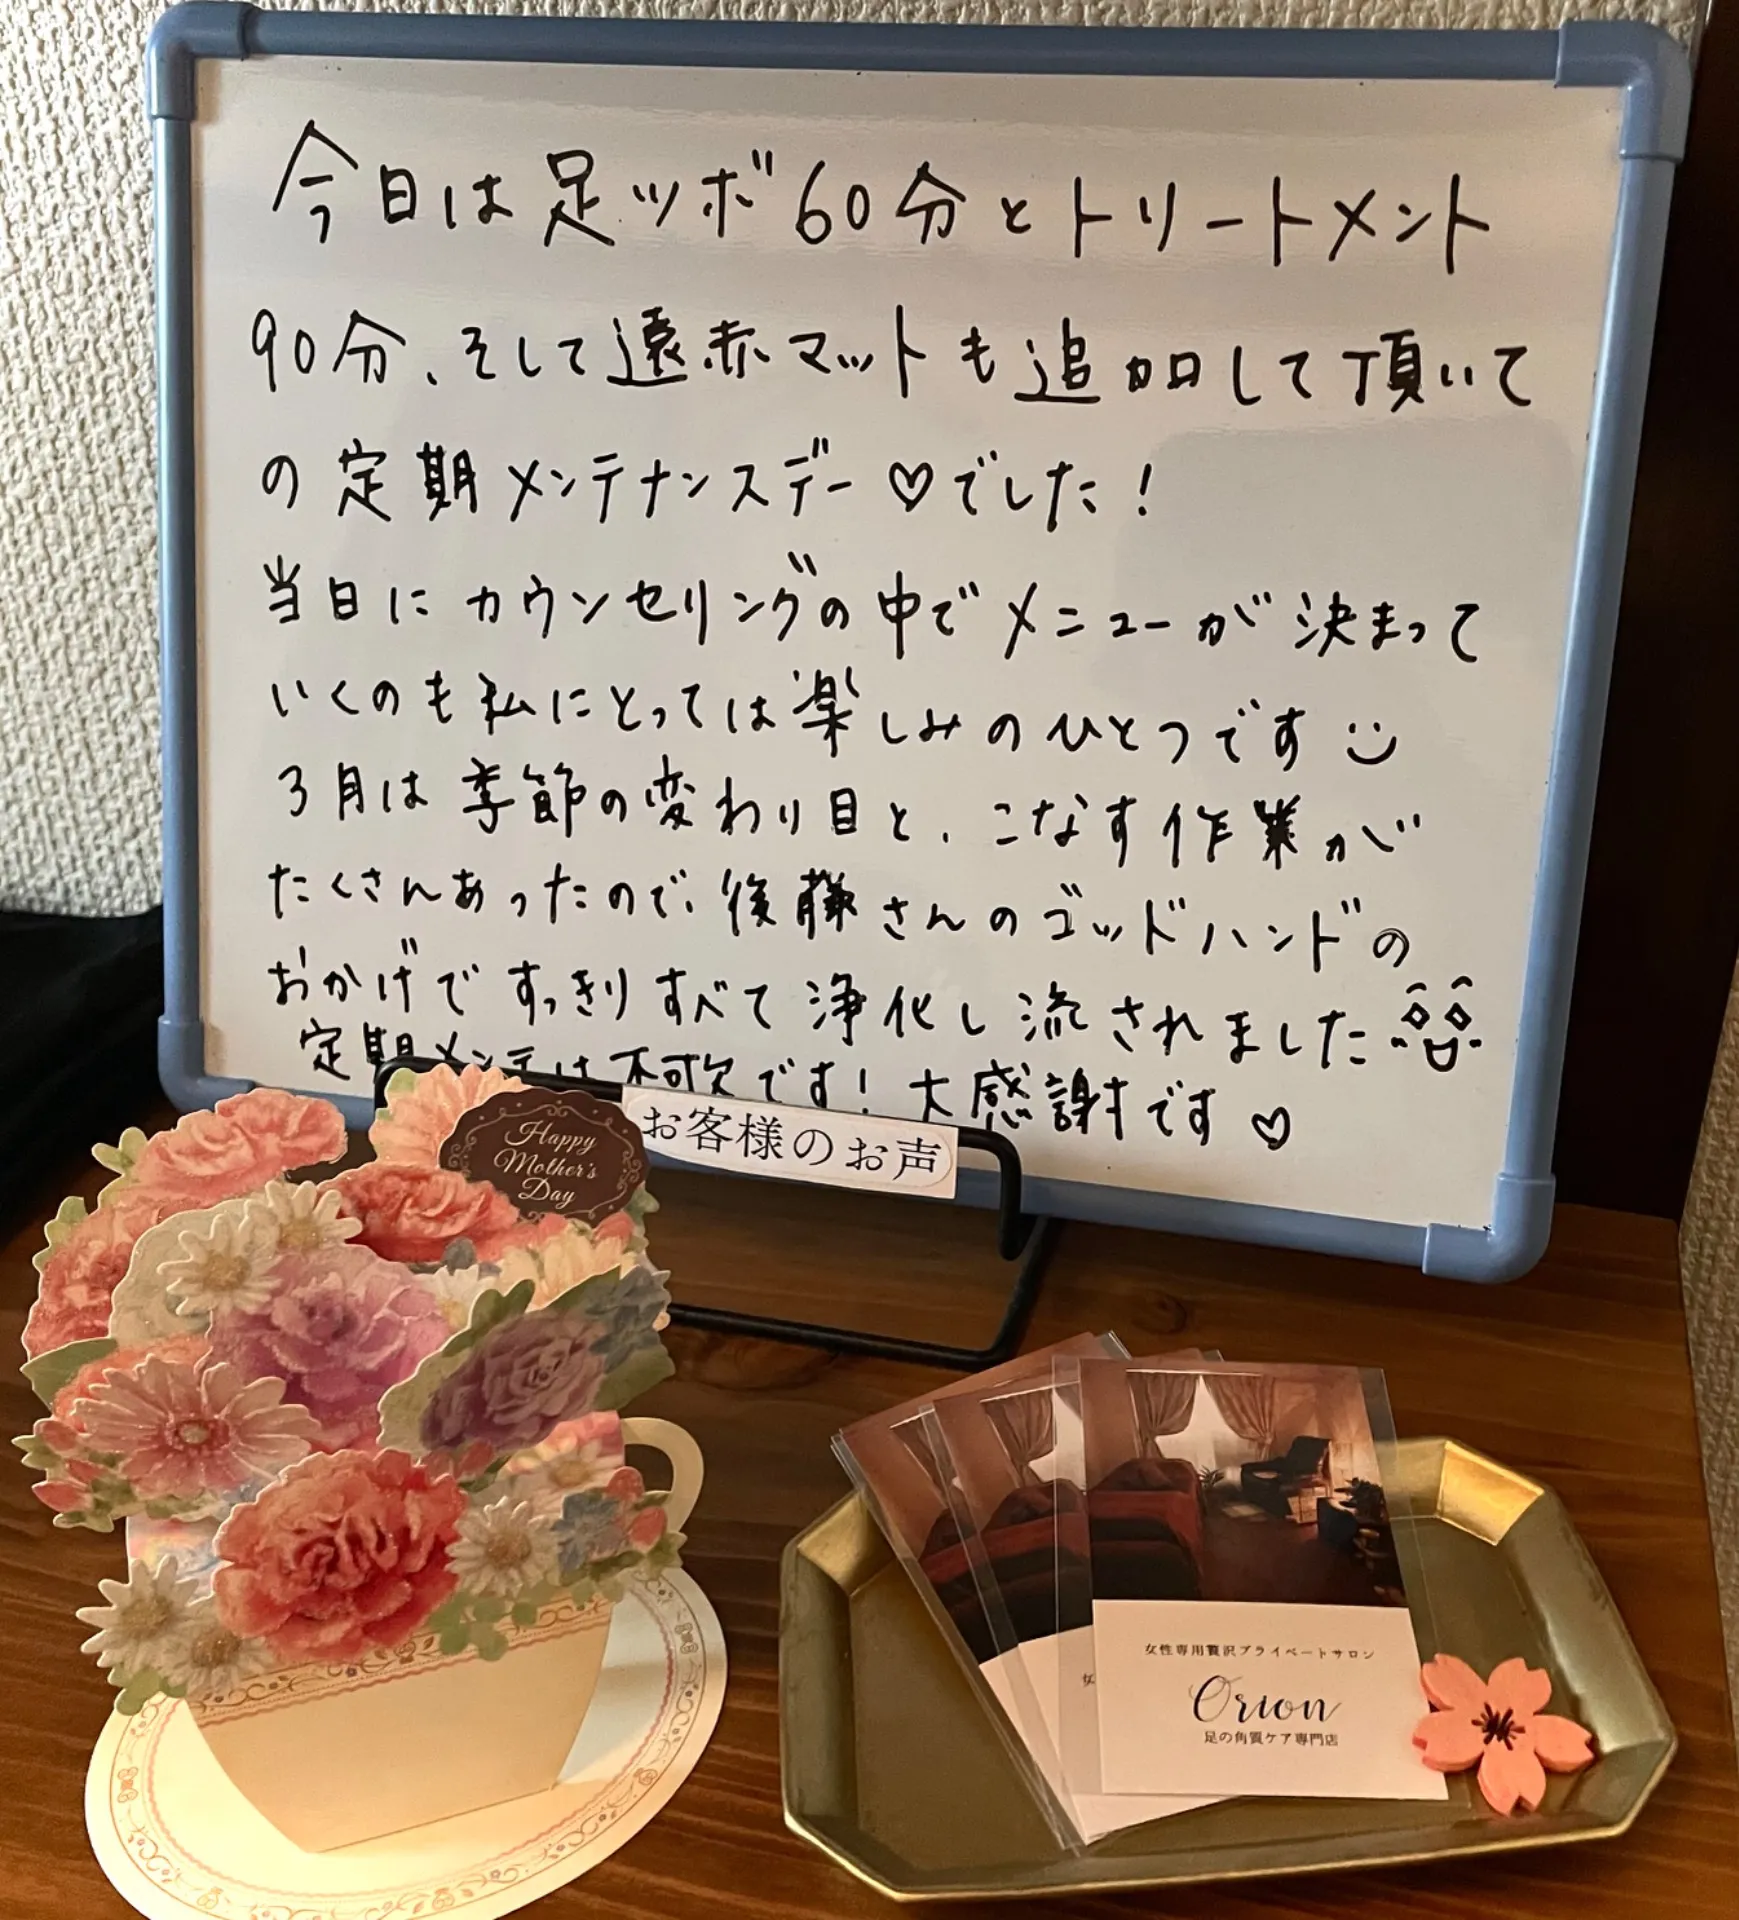 今日は足ツボ60分とトリートメント
90分、そして遠赤マットも追加して頂いて
の定期メンテナンスデー♡でした！
当日にカウンセリングの中でメニューが決まって
いくのも私にとっては楽しみのひとつです
3月は季節の変わり目と、こなす作業が
たくさんあったので、後藤さんのゴッドハンドの
おかげですっきりすべて浄化し流されました
定期メンテは不可欠です！大感謝です♡
お客様のお声
Happy
Mother's
Day
女性専用贅沢プライベートサロン
Orion
足の角質ケア専門店